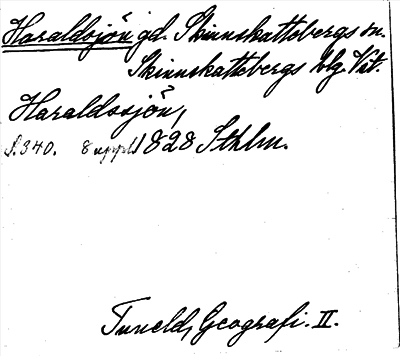 Haraldsjön gd. Skinnskattebergs sn.
Skinnskattebergs blg. Vst.
Haraldssjön,
S. 340. 8 uppl. 1828 Sthlm.
Tuneld, Geografi. II.